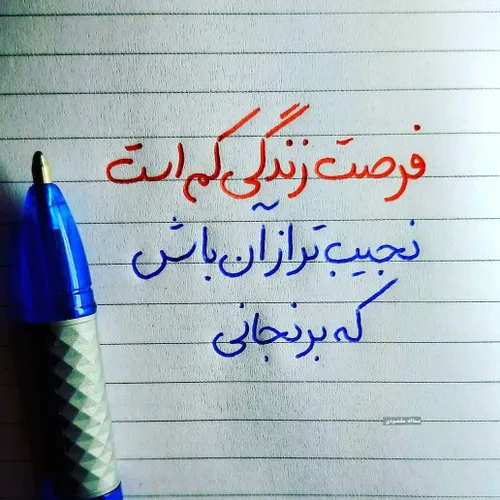 فرصت زندگی کم است
نجیب تر از آن باش
که برنجانی